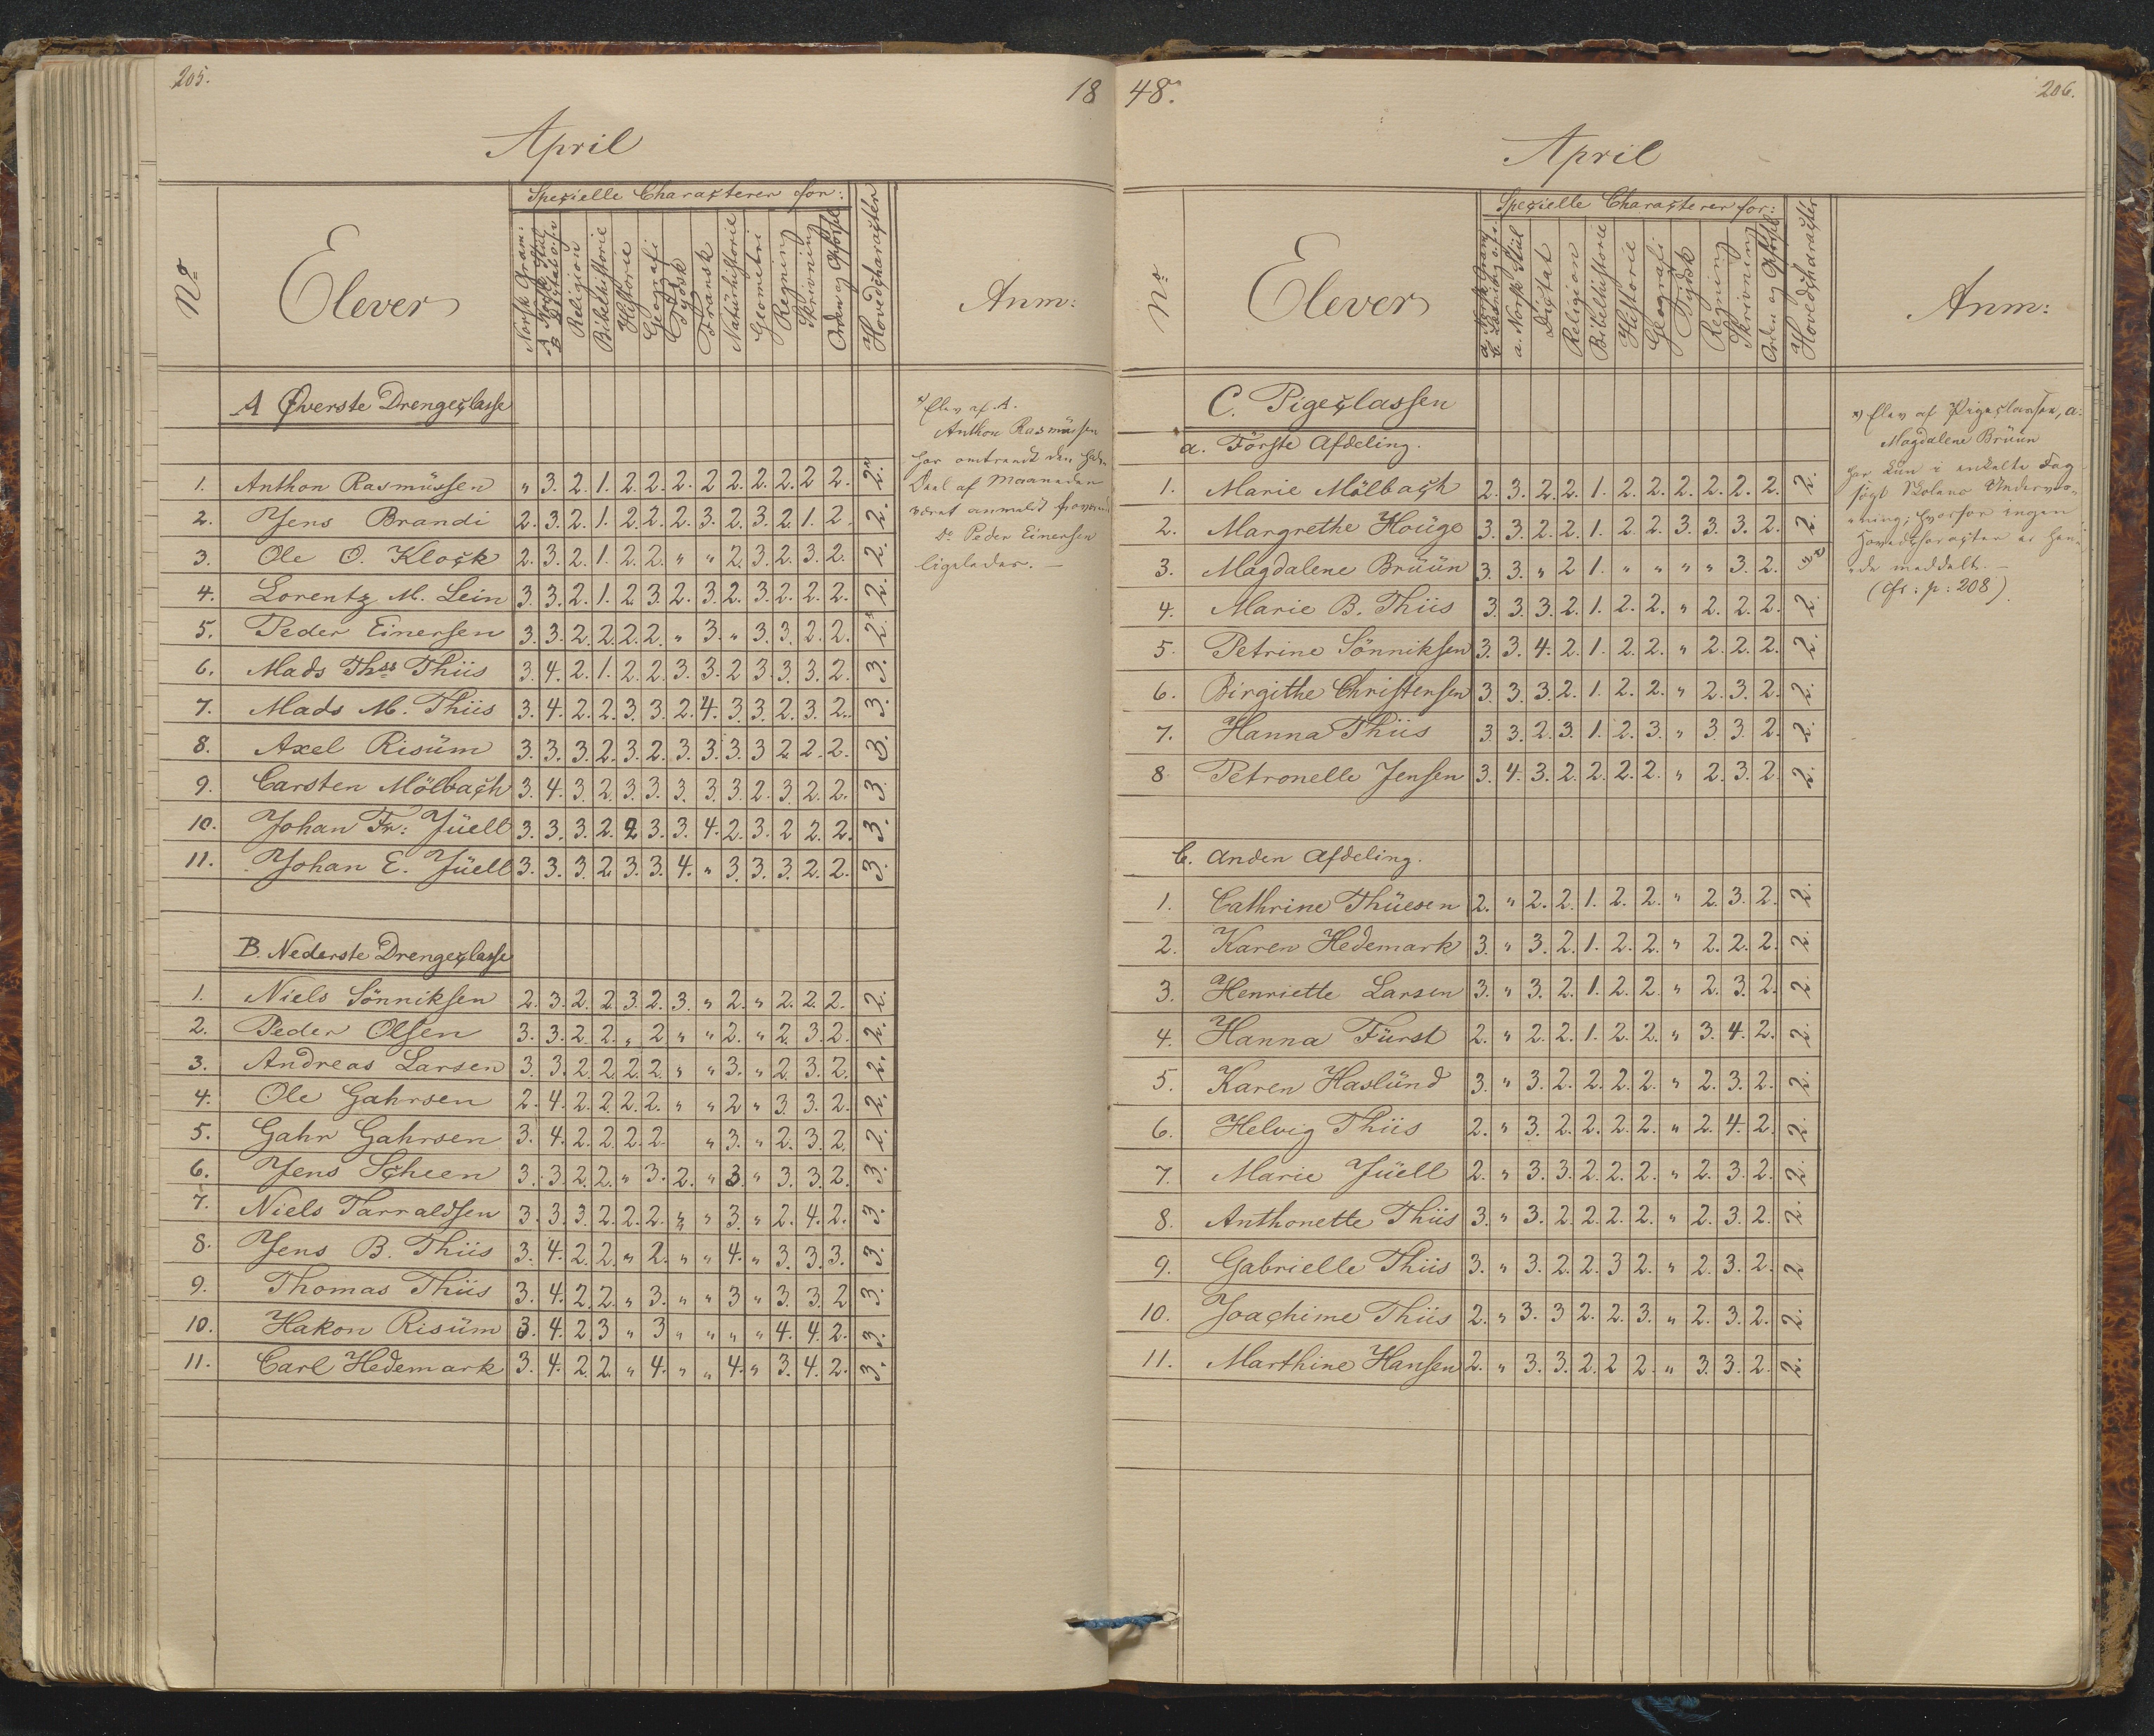 205.
18
April
Specielle Characterer for:
No
Elever
Norsk Gram:
A Norsk Stiil
B Dictat o.s.v
Religion
Bibelhistorie
Historie
Geografi
Tydsk
Fransk
Natürhistorie
Geometri
Regning
Skrivning
Orden og Opførsel
Hovedcharacter
Anm:
A Øverste Drengeclasse
1. Anthon Rasmüssen " 3. 2. 1. 2. 2. 2. 2 2. 2. 2. 2 2. 2.
2. Jens Brandi 2. 3. 2. 1. 2. 2. 2. 3. 2. 3. 2. 1. 2. 2.
3. Ole O. Klock 2. 3. 2. 1. 2. 2. " " 2. 3. 2. 3. 2. 2.
4. Lorentz M. Lein 3. 3. 2. 1. 2. 3. 2. 3. 2. 3. 2. 2. 2. 2.
5. Peder Einersen 3. 3. 2. 2. 2. 2. " 3. " 3. 3. 2. 2. 2.
6. Mads Thss Thiis 3. 4. 2. 1. 2. 2. 3. 3. 2 3. 3. 3. 2. 3.
7. Mads M. Thiis 3. 4. 2. 2. 3. 3. 2. 4. 3. 3. 2. 3. 2. 3.
8. Axel Risüm 3. 3. 3. 2. 3. 2. 3. 3. 3. 3 2. 2. 2. 3.
9. Carsten Mölbach 3. 4. 3. 2. 3. 3. 3. 3. 3. 2. 3. 2. 2. 3.
10. Johan Fr: Jüell 3. 3. 3. 2. 2 3. 3. 4. 2. 3. 2 2. 2. 3.
11. Johan E. Jüell 3. 3. 3. 2. 3. 3. 4. " 3. 3. 3. 2. 2. 3.
B. Nederste Drengeclasse
1. Niels Sönniksen 2. 3. 2. 2. 3. 2. 3. " 2. " 2. 2. 2. 2.
2. Peder Olsen 3. 3. 2. 2. " 2 " " 2. " 2. 3. 2. 2.
3. Andreas Larsen 3. 3. 2. 2. 2. 2. " " 3. " 2. 3. 2. 2.
4. Ole Gahrsen 2. 4. 2. 2. 2. 2. " " 2 " 3. 3. 2. 2.
5. Gahr Gahrsen 3. 4. 2. 2. 2. 2. " 3. " 2. 3. 2. 2.
6. Jens Scheen 3. 3 2. 2. " 3. 2. " 3. " 3. 3. 2. 3.
7. Niels Tarraldsen 3. 3. 3. 2. 2. 2. " " 3. " 2. 4. 2. 3.
8. Jens B. Thiis 3. 4. 2. 2. " 2. " " 4. " 3. 3. 3. 3.
9. Thomas Thiis 3. 4. 2. 2. " 3. " " 3 " 3. 3. 2 3.
10. Hakon Risüm 3. 4. 2. 3 " 3 " " " " 4. 4. 2. 3.
11. Carl Hedemark 3. 4. 2. 2. " 4. " " 4. " 3. 4. 2. 3.
*) Elev af A.
Anthon Rasmüssen
har omtrendt den halve
Deel af Maaneden
været anmeldt fraværende
Do Peder Einersen
ligeledes. —
48.
206.
April
Specielle Characterer for:
No
Elever
a. Norsk Gram
b. Læsning o.s.v.
a. Norsk Stiil
Dictat
Religion
Bibelhistorie
Historie
Geografi
Tydsk
Regning
Skrivning
Orden og Opførsel
Hovedcharacter
Anm:
C. Pigeclassen
a. Förste Afdeling.
1. Marie Mölbach 2. 3. 2. 2. 1. 2. 2. 2. 2. 2. 2. 2.
2. Margrethe Hoüge 3. 3. 2. 2. 1. 2. 2. 3. 3. 3. 2. 2.
3. Magdalene Brüün 3. 3. " 2 1. " " " " 3. 2.
4. Marie B. Thiis 3. 3. 3. 2. 1. 2. 2. " 2. 2. 2. 2.
5. Petrine Sönniksen 3. 3. 4. 2. 1. 2. 2. " 2. 2. 2. 2.
6. Birgithe Christensen 3. 3. 3. 2. 1. 2. 2. " 2. 3. 2. 2.
7. Hanna Thiis 3. 3. 2. 3. 1. 2. 3. " 3. 3. 2. 2.
8. Petronelle Jensen 3. 4. 3. 2. 2. 2. 2. " 2. 3. 2. 2.
b. Anden Afdeling.
1. Cathrine Thüesen 2. " 2. 2. 1. 2. 2. " 2. 3. 2. 2.
2. Karen Hedemark 3. " 3. 2. 1. 2. 2. " 2. 2. 2. 2.
3. Henriette Larsen 3. " 3. 2. 1. 2. 2. " 2. 3. 2. 2.
4. Hanna Fürst 2. " 2. 2. 1. 2. 2. " 3. 4. 2. 2.
5. Karen Haslünd 3. " 3. 2. 2. 2. 2. " 2. 3. 2. 2.
6. Helvig Thiis 2. " 3. 2. 2. 2. 2. " 2. 4. 2. 2.
7. Marie Jüell 2. " 3. 3. 2. 2. 2. " 2. 3. 2. 2.
8. Anthonette Thiis 3. " 3. 2. 2. 2. 2. " 2. 3. 2. 2.
9. Gabrielle Thiis 3. " 3. 2. 2. 3 2. " 2. 3. 2. 2
10. Joachime Thiis 2. " 3. 3 2. 2. 3. " 2. 3. 2. 2.
11. Marthine Hansen 2. " 3. 3. 2. 2 2. " 3. 3. 2. 2.
*) Elev af Pigeclassen, a:
Magdalene Brüün
har kun i enkelte Fag
søgt Skolens Underviis-
ning, hvorfor ingen
Hovedcharacter er hen-
de meddelt. —
(cfr: p: 208).